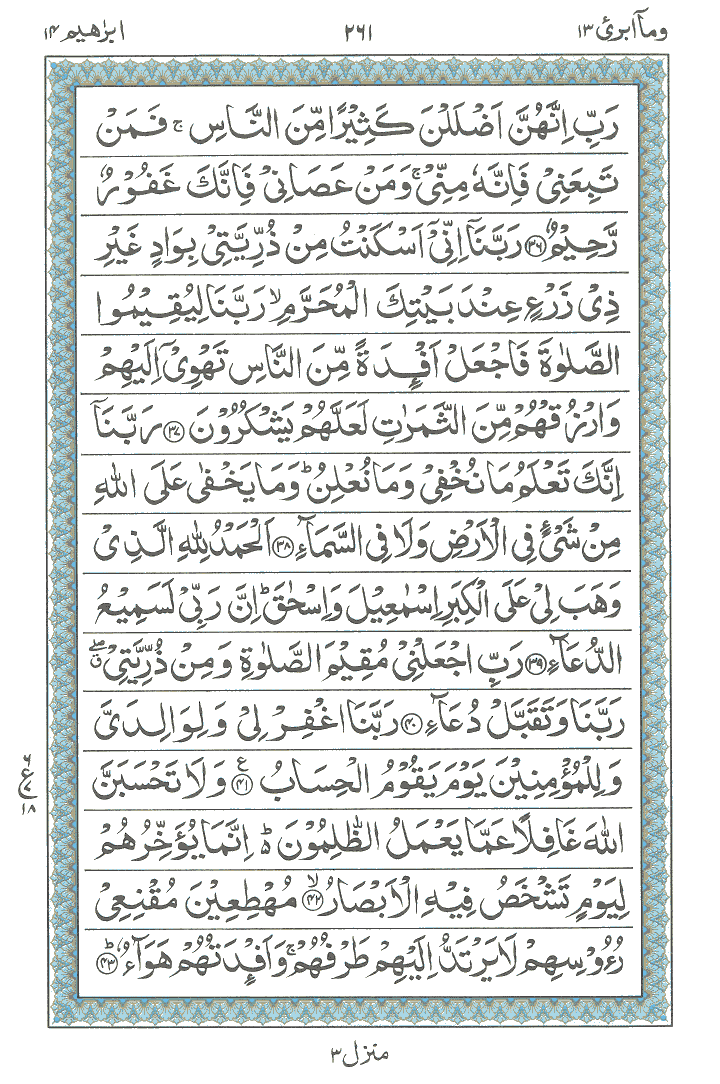 وماۤ ابرئ ۱۳ ۲۶۱ ابرٰهیم ۱۴
رَبِّ اِنَّهُنَّ اَضْلَلْنَ كَثِیْرًا مِّنَ النَّاسِ ۚ فَمَنْ
تَبِعَنِیْ فَاِنَّهٗ مِنِّیْ ۚ وَمَنْ عَصَانِیْ فَاِنَّكَ غَفُوْرٌ
رَّحِیْمٌ ﴿۳۶﴾ رَبَّنَاۤ اِنِّیْۤ اَسْكَنْتُ مِنْ ذُرِّیَّتِیْ بِوَادٍ غَیْرِ
ذِیْ زَرْعٍ عِنْدَ بَیْتِكَ الْمُحَرَّمِ ۙ رَبَّنَا لِیُقِیْمُوا
الصَّلٰوةَ فَاجْعَلْ اَفْـِٕدَةً مِّنَ النَّاسِ تَهْوِیْۤ اِلَیْهِمْ
وَارْزُقْهُمْ مِّنَ الثَّمَرٰتِ لَعَلَّهُمْ یَشْكُرُوْنَ ﴿۳۷﴾ رَبَّنَاۤ
اِنَّكَ تَعْلَمُ مَا نُخْفِیْ وَمَا نُعْلِنُ ؕ وَمَا یَخْفٰی عَلَی اللّٰهِ
مِنْ شَیْءٍ فِی الْاَرْضِ وَلَا فِی السَّمَآءِ ﴿۳۸﴾ اَلْحَمْدُ لِلّٰهِ الَّذِیْ
وَهَبَ لِیْ عَلَی الْكِبَرِ اِسْمٰعِیْلَ وَاِسْحٰقَ ؕ اِنَّ رَبِّیْ لَسَمِیْعُ
الدُّعَآءِ ﴿۳۹﴾ رَبِّ اجْعَلْنِیْ مُقِیْمَ الصَّلٰوةِ وَمِنْ ذُرِّیَّتِیْ ۖۗ
رَبَّنَا وَتَقَبَّلْ دُعَآءِ ﴿۴۰﴾ رَبَّنَا اغْفِرْ لِیْ وَلِوَالِدَیَّ
وَلِلْمُؤْمِنِیْنَ یَوْمَ یَقُوْمُ الْحِسَابُ ﴿۴۱﴾ ع وَلَا تَحْسَبَنَّ
اللّٰهَ غَافِلًا عَمَّا یَعْمَلُ الظّٰلِمُوْنَ ؕ۬ اِنَّمَا یُؤَخِّرُهُمْ
لِیَوْمٍ تَشْخَصُ فِیْهِ الْاَبْصَارُ ﴿۴۲﴾ ۙ مُهْطِعِیْنَ مُقْنِعِیْ
رُءُوْسِهِمْ لَا یَرْتَدُّ اِلَیْهِمْ طَرْفُهُمْ ۚ وَاَفْـِٕدَتُهُمْ هَوَآءٌ ﴿۴۳﴾ ؕ
۶
ع ۷
۱۸
منزل ۳